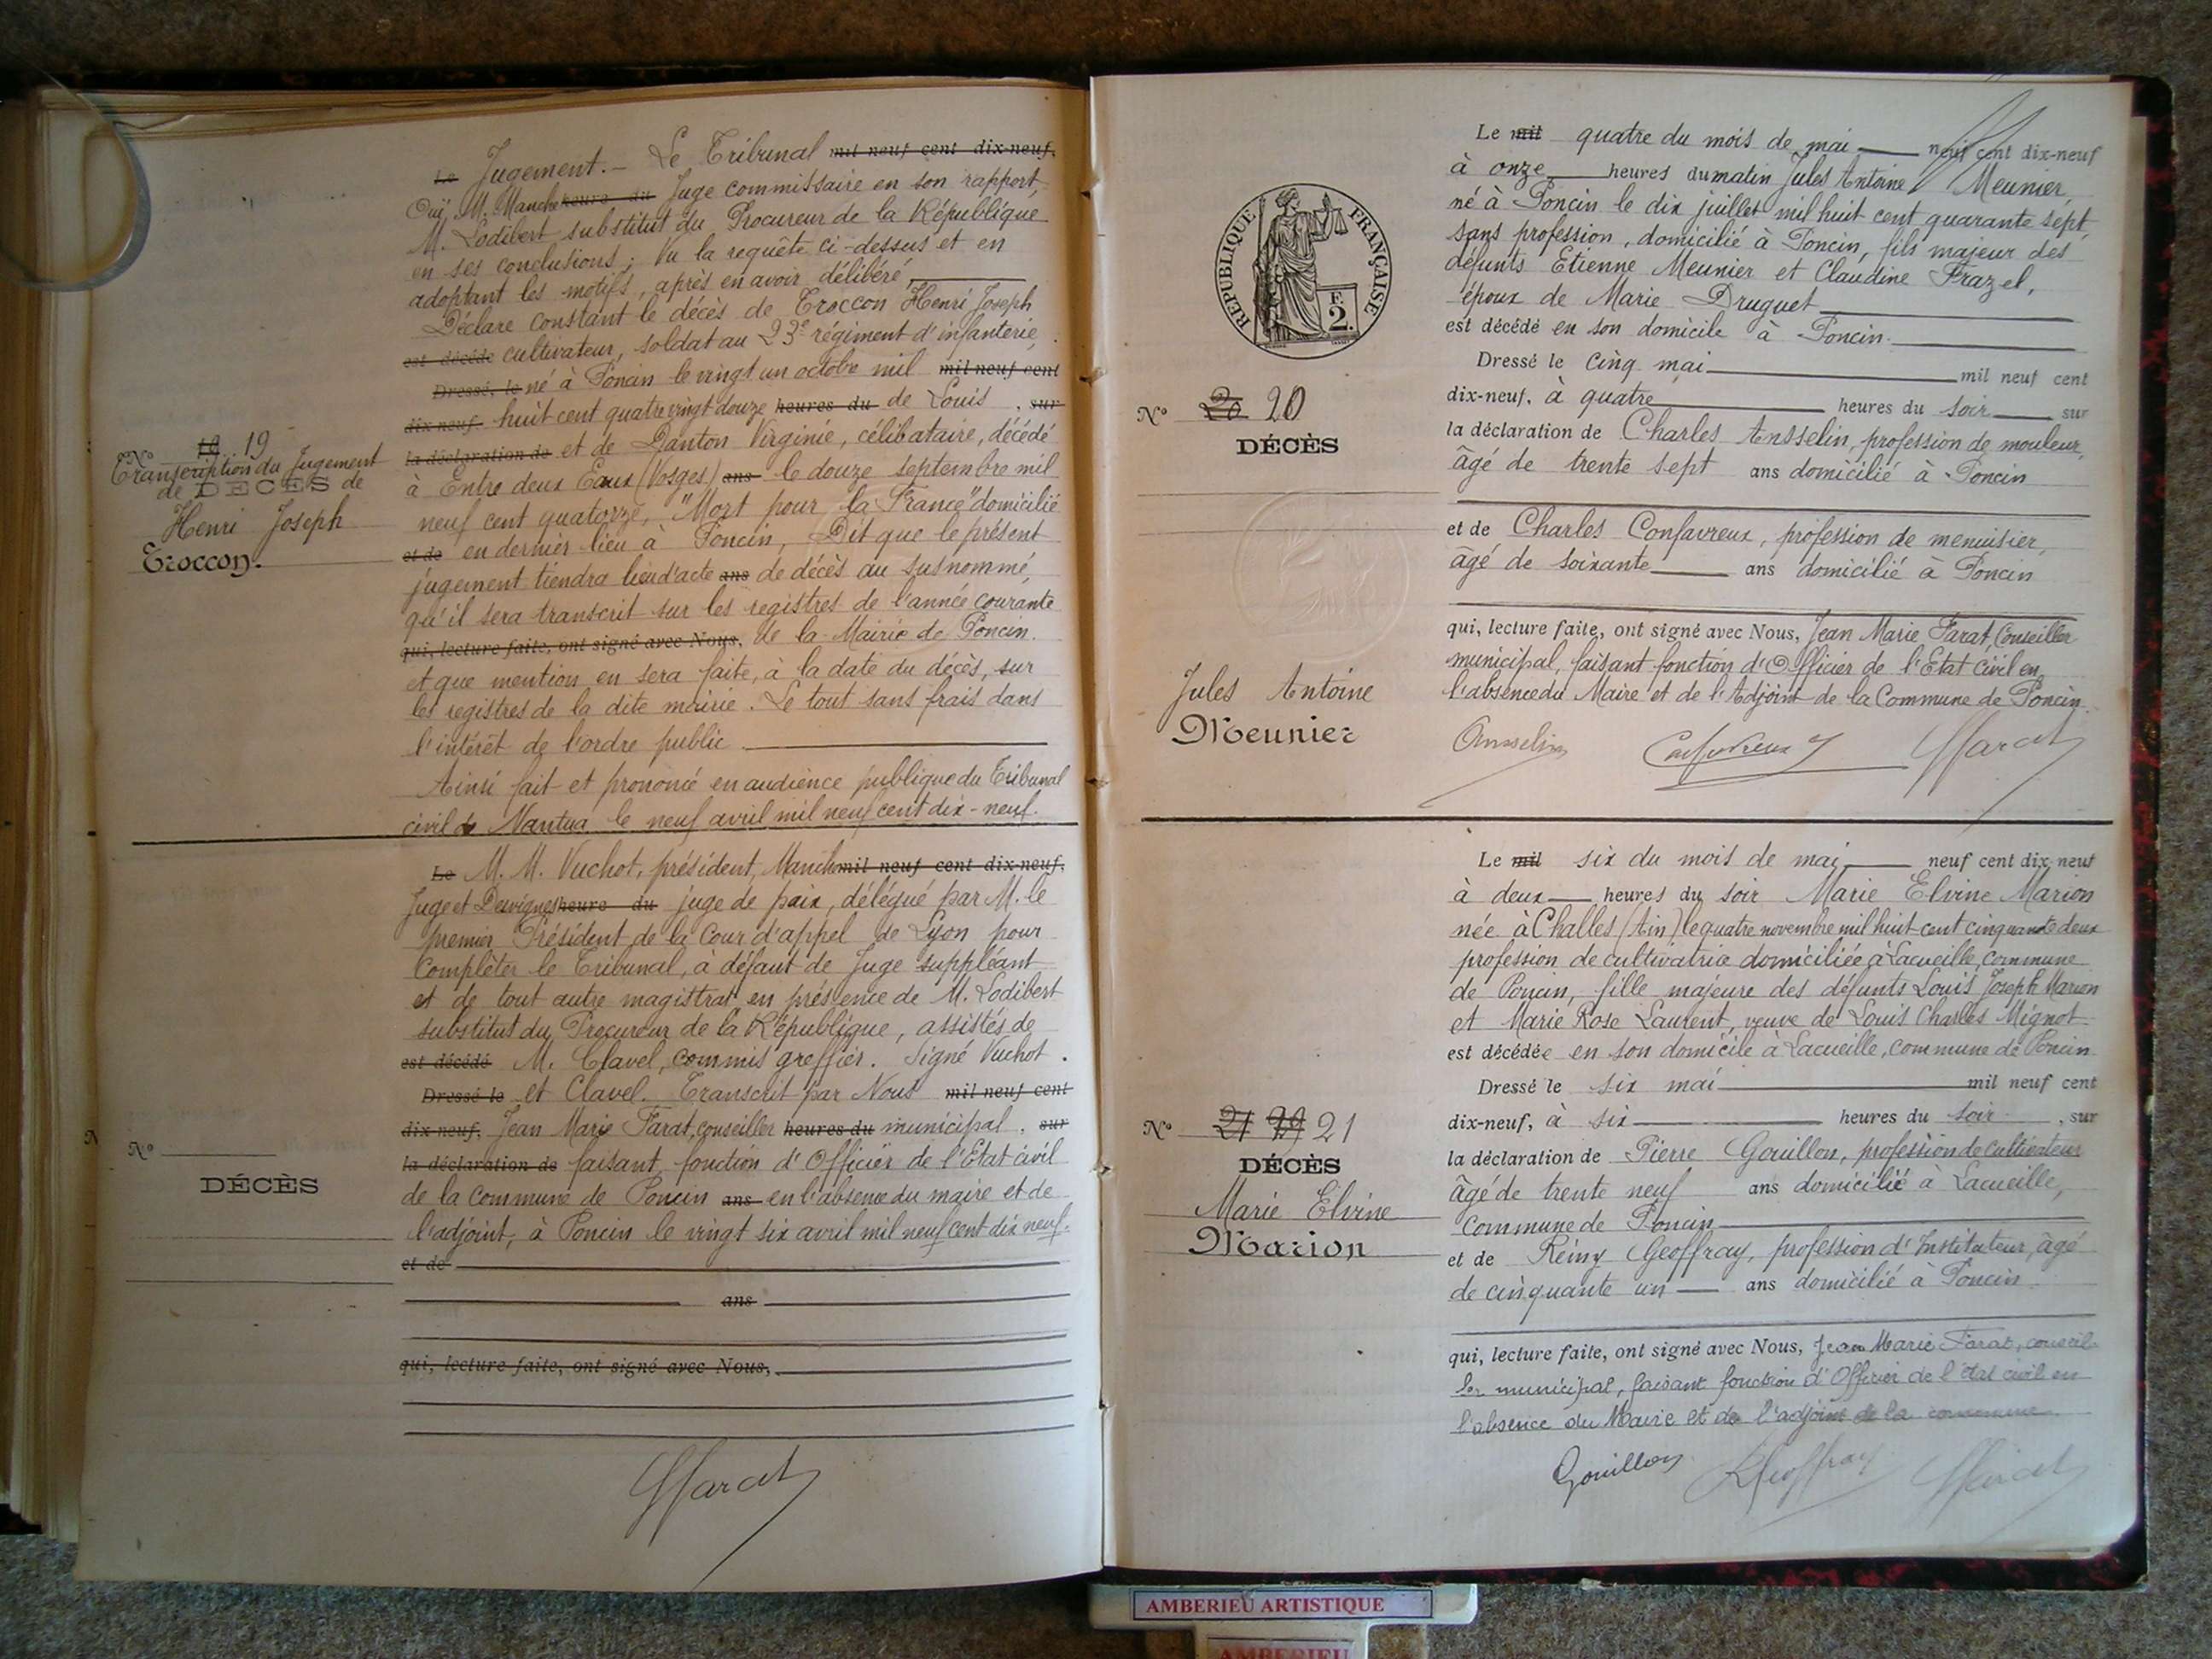 Jugement. - Le Tribunal mil neuf cent dix-neuf.
Le
Ouï, M. Manche heure du Juge commissaire en son rapport,
M. Lodibert substitut du Procureur de la République
en ses conclusions ; Vu la requête ci-dessus et en
adoptant les motifs, après en avoir délibéré,
Déclare constant le décès de Troccon Henri Joseph
est décédé cultivateur, soldat au 23e régiment d'infanterie,
Dressé, le né à Poncin le vingt un octobre mil mil neuf cent
dix-neuf. huit cent quatre vingt douze heures du de Louis , sur
la déclaration de et de Danton Virginie, célibataire, décédé
à Entre deux Eaux (Vosges) ans le douze septembre mil
neuf cent quatorze, "Mort pour la France" domicilié
et de en dernier lieu à Poncin, Dit que le présent
jugement tiendra lieu d'acte ans de décès au susnommé,
qu'il sera transcrit sur les registres de l'année courante
qui, lecture faite, ont signé avec Nous, de la Mairie de Poncin.
et que mention en sera faite, à la date du décès, sur
les registres de la dite mairie. Le tout sans frais dans
l'intérêt de l'ordre public
Ainsi fait et prononcé en audience publique du Tribunal
civil de Nantua le neuf avril mil neuf cent dix-neuf.
No 19
Transcription du Jugement
de DÉCÈS de
Henri Joseph
Troccon.
Le M. M. Vuchot, président, Manche mil neuf cent dix-neuf,
Juge et Desvignes heure du juge de paix, délégué par M. le
premier Président de la Cour d'appel de Lyon pour
Compléter le Tribunal, à défaut de Juge suppléant
et de tout autre magistrat en présence de M. Lodibert
substitut du Procureur de la République, assistés de
est décédé M. Clavel, commis greffier. Signé Vuchot .
Dressé le et Clavel. Transcrit par Nous mil neuf cent
dix-neuf, Jean Marie Farat, conseiller heures du municipal , sur
la déclaration de faisant fonction d'Officier de l'Etat civil
de la commune de Poncin ans en l'absence du maire et de
l'adjoint, à Poncin le vingt six avril mil neuf cent dix neuf.
et de
ans
qui, lecture faite, ont signé avec Nous,
No
DÉCÈS
Farat
RÉPUBLIQUE FRANÇAISE
F.
2.
No 20 20
DÉCÈS
Jules Antoine
Meunier
Le mil quatre du mois de mai neuf cent dix-neuf
à onze heures du matin Jules Antoine Meunier,
né à Poncin le dix juillet mil huit cent quarante sept,
sans profession, domicilié à Poncin, fils majeur des
défunts Etienne Meunier et Claudine Prazel,
époux de Marie Druguet
est décédé en son domicile à Poncin.
Dressé le cinq mai mil neuf cent
dix-neuf, à quatre heures du soir sur
la déclaration de Charles Ansselin, profession de mouleur,
âgé de trente sept ans domicilié à Poncin
et de Charles Confavreux, profession de menuisier,
âgé de soixante ans domicilié à Poncin
qui, lecture faite, ont signé avec Nous, Jean Marie Farat, Conseiller
municipal, faisant fonction d'Officier de l'Etat Civil en
l'absence du Maire et de l'Adjoint de la Commune de Poncin.
Ansselin Confavreux Farat
No 21 21
DÉCÈS
Marie Elvine
Marion
Le mil six du mois de mai neuf cent dix-neuf
à deux heures du soir Marie Elvine Marion
née à Challes (Ain) le quatre novembre mil huit cent cinquante deux
profession de cultivatrice domiciliée à Lacueille, commune
de Poncin, fille majeure des défunts Louis Joseph Marion
et Marie Rose Laurent, veuve de Louis Charles Mignot
est décédée en son domicile à Lacueille, commune de Poncin.
Dressé le six mai mil neuf cent
dix-neuf, à six heures du soir , sur
la déclaration de Pierre Gouillon, profession de cultivateur
âgé de trente neuf ans domicilié à Lacueille,
commune de Poncin
et de Rémy Geoffray, profession d'Instituteur, âgé
de cinquante un ans domicilié à Poncin
qui, lecture faite, ont signé avec Nous, Jean Marie Farat, conseil-
ler municipal, faisant fonction d'Officier de l'état civil en
l'absence du Maire et de l'adjoint de la commune
Gouillon RGeoffray Farat
AMBERIEU ARTISTIQUE
AMBERIEU